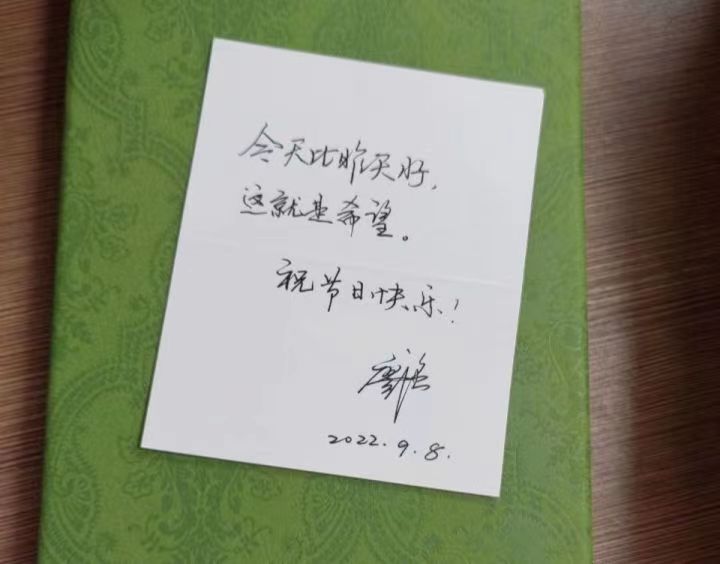 今天比昨天好，
这就是希望。
祝节日快乐！
2022.9.8.